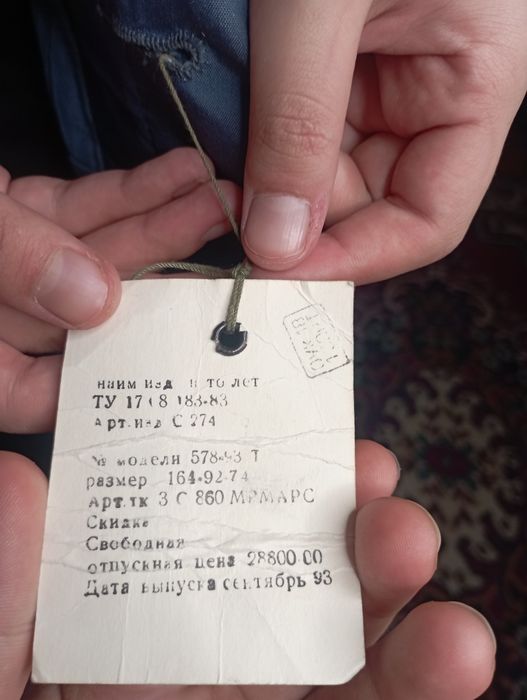 наим изд
ТУ 17 08 183-83
Арт.изд С 274
№ модели 578-93 Т
размер 164-92-74
Арт.тк 3 С 860 МРМАРС
Скидка
Свободная
отпускная цена 28800.00
Дата выпуска сентябрь 93